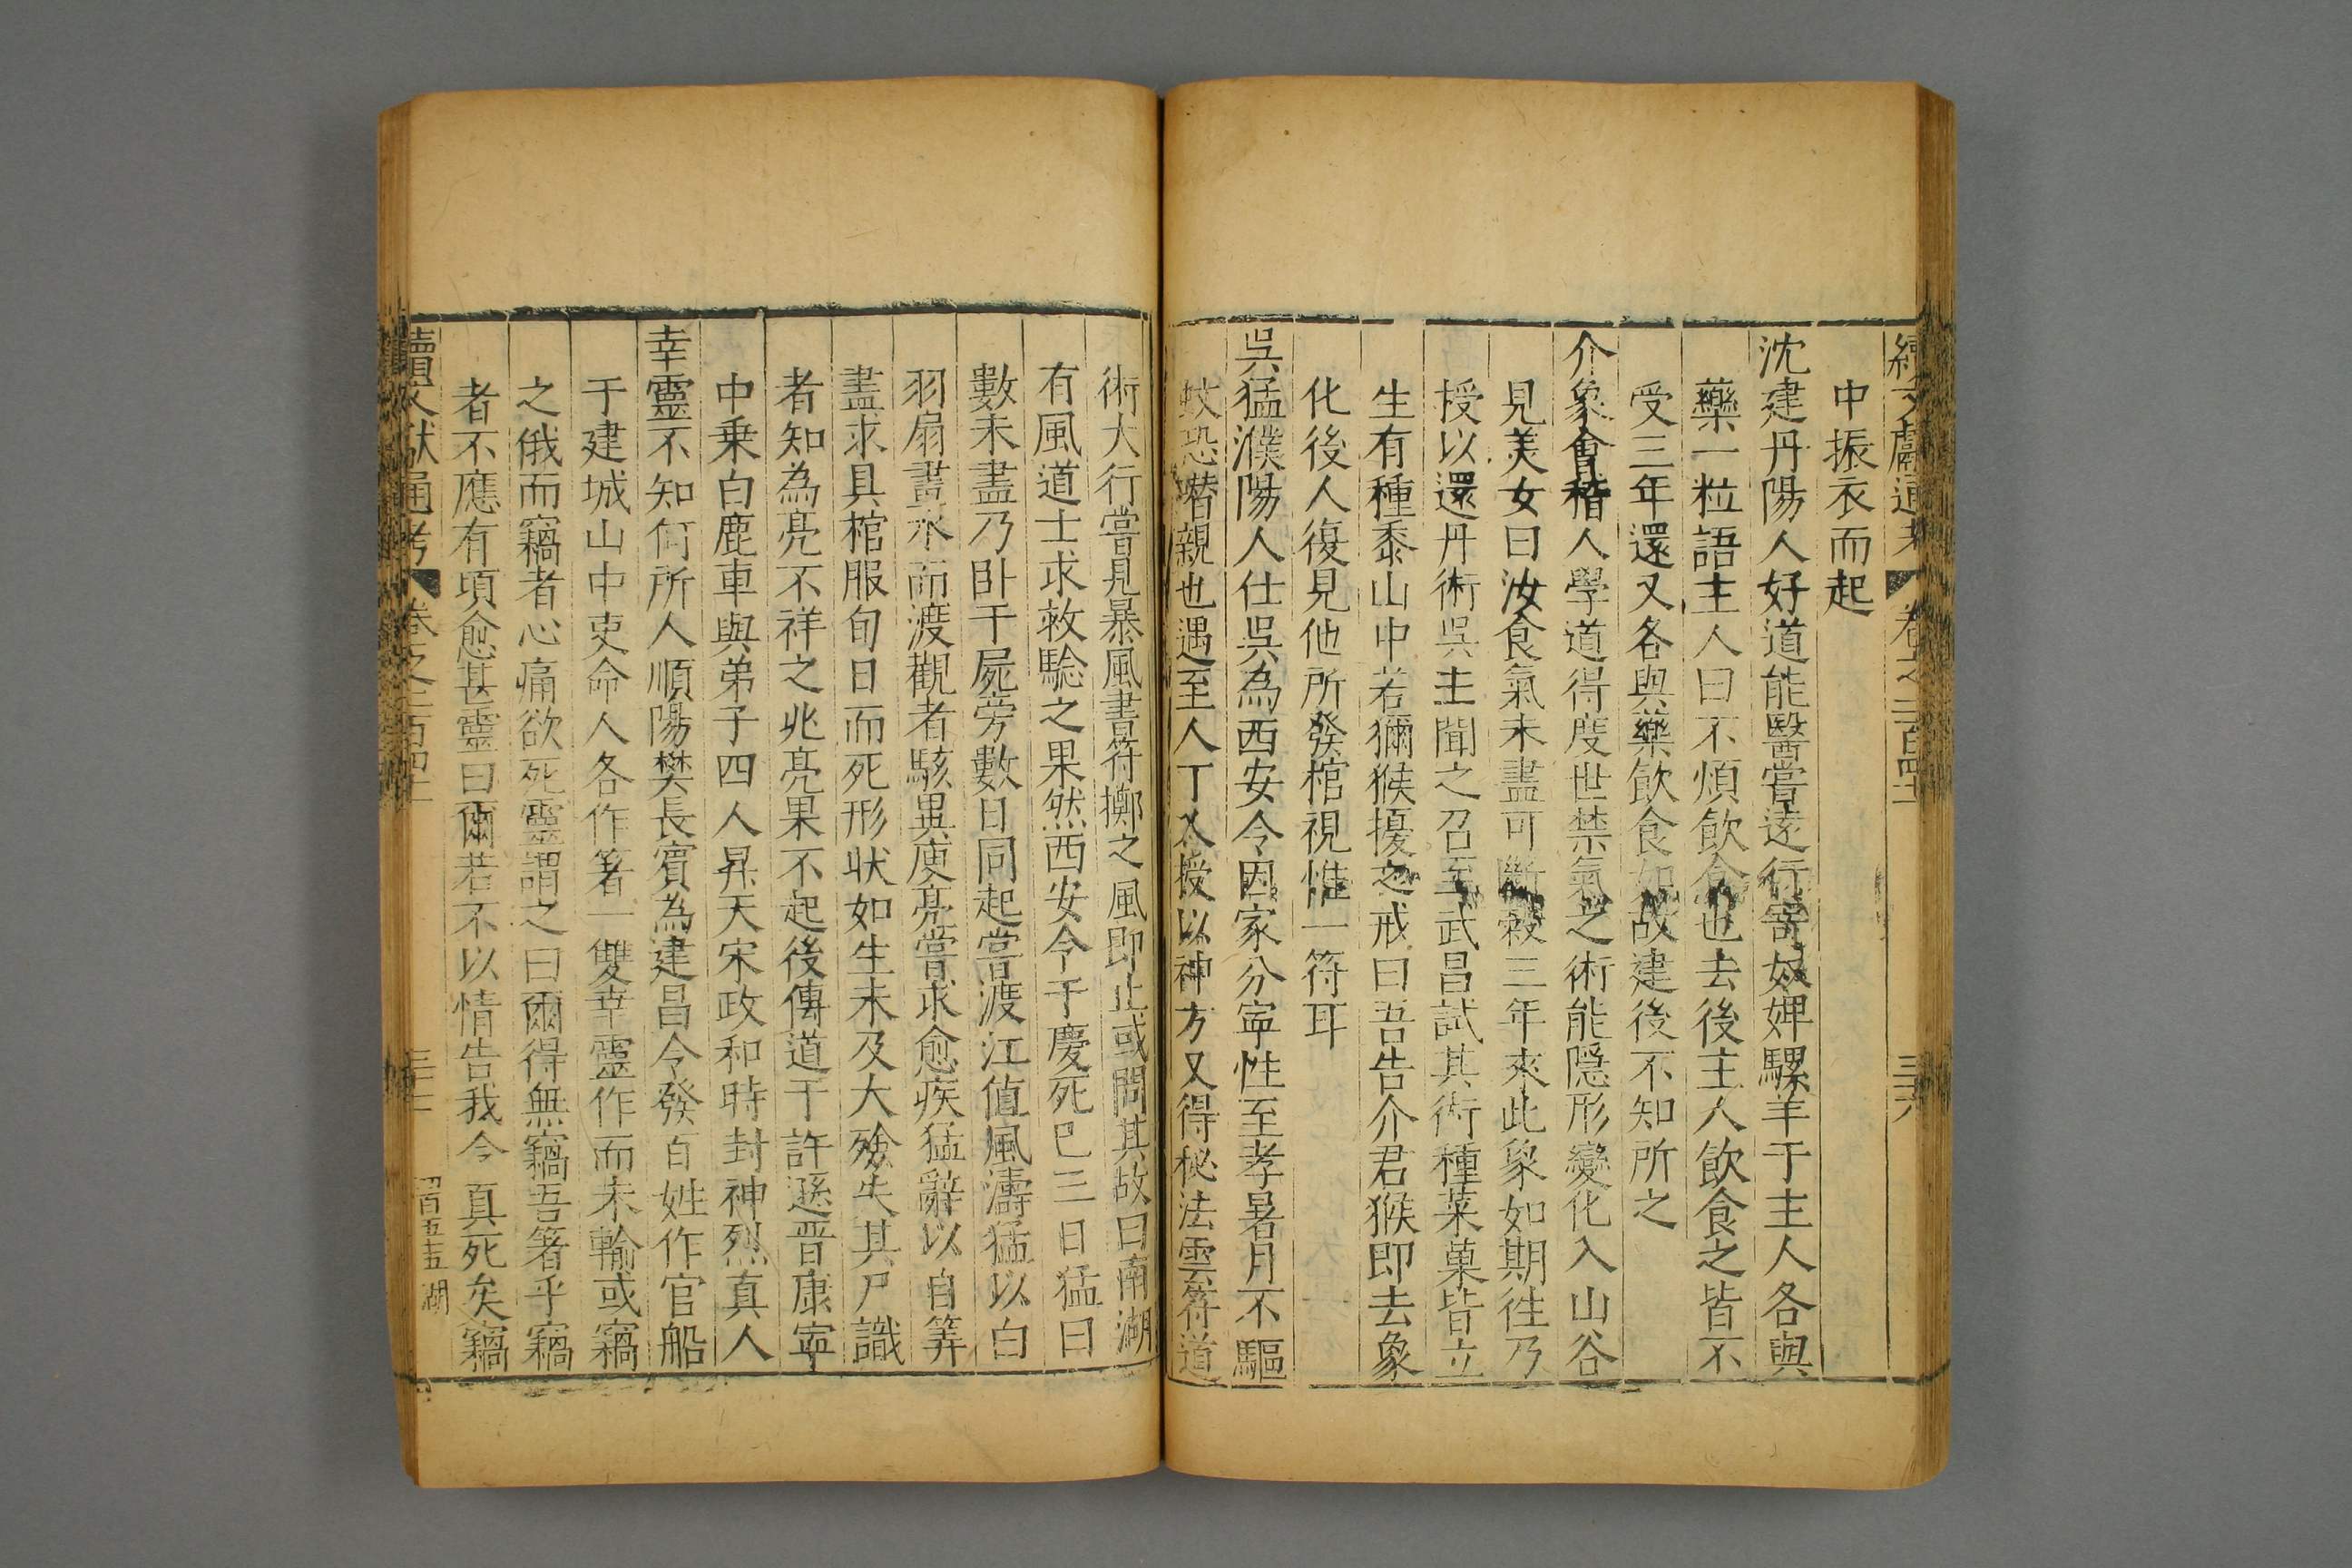 續文獻通考 卷之二百四十一 三六
中振衣而起
沈建丹陽人好道能醫嘗遠行寄奴婢騾羊于主人各與
藥一粒語主人曰不煩飲食也去後主人飲食之皆不
受三年還又各與藥飲食如故建後不知所之
介象會稽人學道得度世禁氣之術能隱形變化入山谷
見美女曰汝食氣未盡可斷穀三年來此象如期徃乃
授以還丹術吳主聞之召至武昌試其術種菜菓皆立
生有種黍山中若獼猴擾之戒曰吾告介君猴即去象
化後人復見他所發棺視惟一符耳
吳猛濮陽人仕吳為西安令因家分寧性至孝暑月不驅
蚊恐噆親也遇至人丁义授以神方又得秘法雲符道
術大行嘗見暴風書符擲之風即止或問其故曰南湖
有風道士求救驗之果然西安令于慶死巳三日猛曰
數未盡乃卧于屍旁數日同起嘗渡江值風濤猛以白
羽扇畫水而渡觀者駭異庾亮嘗求愈疾猛辭以自筭
盡求具棺服旬日而死形狀如生未及大殮失其尸識
者知為亮不祥之兆亮果不起後傳道于許遜晋康寧
中乗白鹿車與弟子四人昇天宋政和時封神烈真人
幸靈不知何所人順陽樊長賓為建昌令發百姓作官船
于建城山中吏命人各作箸一雙幸靈作而未輸或竊
之俄而竊者心痛欲死靈謂之曰爾得無竊吾箸乎竊
者不應有頃愈甚靈曰爾若不以情告我今真死矣竊
續文獻通考 卷之二百四十一 三十 四百五十五 湖